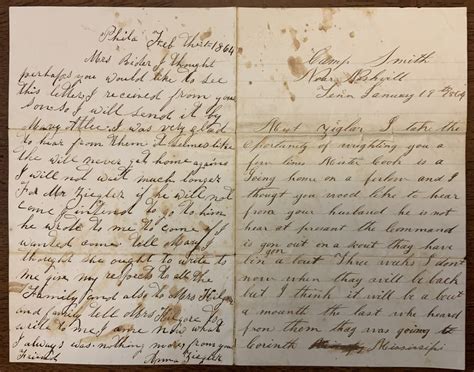 Phila Feb the 1st 1864
Mrs Reider I thought
perhaps you would like to see
this letter I received from your
Son So I will send it by
Mary Allee I was very glad
to hear from them it seems like
the will never get home again
I will not wait much longer
For Mr Ziegler if he will not
come I intend to go to him
he wrote to me to come I
wanted come tell Mary I
thought she ought to write to
me give my respects to all the
Family and also to Mrs
and family tell Mrs
write to me I am now what
I always was nothing more from
Friend Anna Ziegler
Camp Smith
Near Nashvill
Tenn January 18 1864
Ziglar I take the
opertunity of wrighting you a
few lines Cook is a
Going home on a furlow and I
thougt you wood like to hear
from your husband he is not
hear at preasant the command
is gon out on a Scout thay have
bin a bout Three weeks I don't
now when thay will be back
but I think it will be a bout
a mounth the last we heard
from them thay was going to
Corinth Mississipi